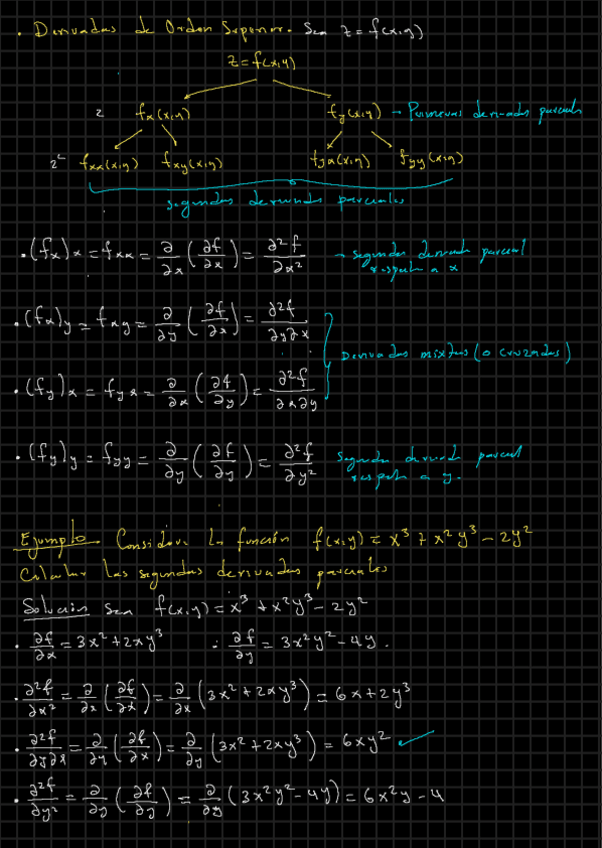 · Derivadas de Orden Superior. Sea z = f(x,y)
z = f(x,y)
2 fx(x,y) fy(x,y) → Primeras derivadas parciales
2² fxx(x,y) fxy(x,y) fyx(x,y) fyy(x,y)
segundas derivadas parciales
· (fx)x = fxx = ∂/∂x (∂f/∂x) = ∂²f/∂x² → segunda derivada parcial
respecto a x
· (fx)y = fxy = ∂/∂y (∂f/∂x) = ∂²f/∂y∂x
Derivadas mixtas (o cruzadas)
· (fy)x = fyx = ∂/∂x (∂f/∂y) = ∂²f/∂x∂y
· (fy)y = fyy = ∂/∂y (∂f/∂y) = ∂²f/∂y² Segunda derivada parcial
respecto a y.
Ejemplo. Considere la función f(x,y) = x³ + x²y³ - 2y²
Calcular las segundas derivadas parciales
Solución Sea f(x,y) = x³ + x²y³ - 2y²
· ∂f/∂x = 3x² + 2xy³ : ∂f/∂y = 3x²y² - 4y.
· ∂²f/∂x² = ∂/∂x (∂f/∂x) = ∂/∂x (3x² + 2xy³) = 6x + 2y³
· ∂²f/∂y∂x = ∂/∂y (∂f/∂x) = ∂/∂y (3x² + 2xy³) = 6xy² ✓
· ∂²f/∂y² = ∂/∂y (∂f/∂y) = ∂/∂y (3x²y² - 4y) = 6x²y - 4